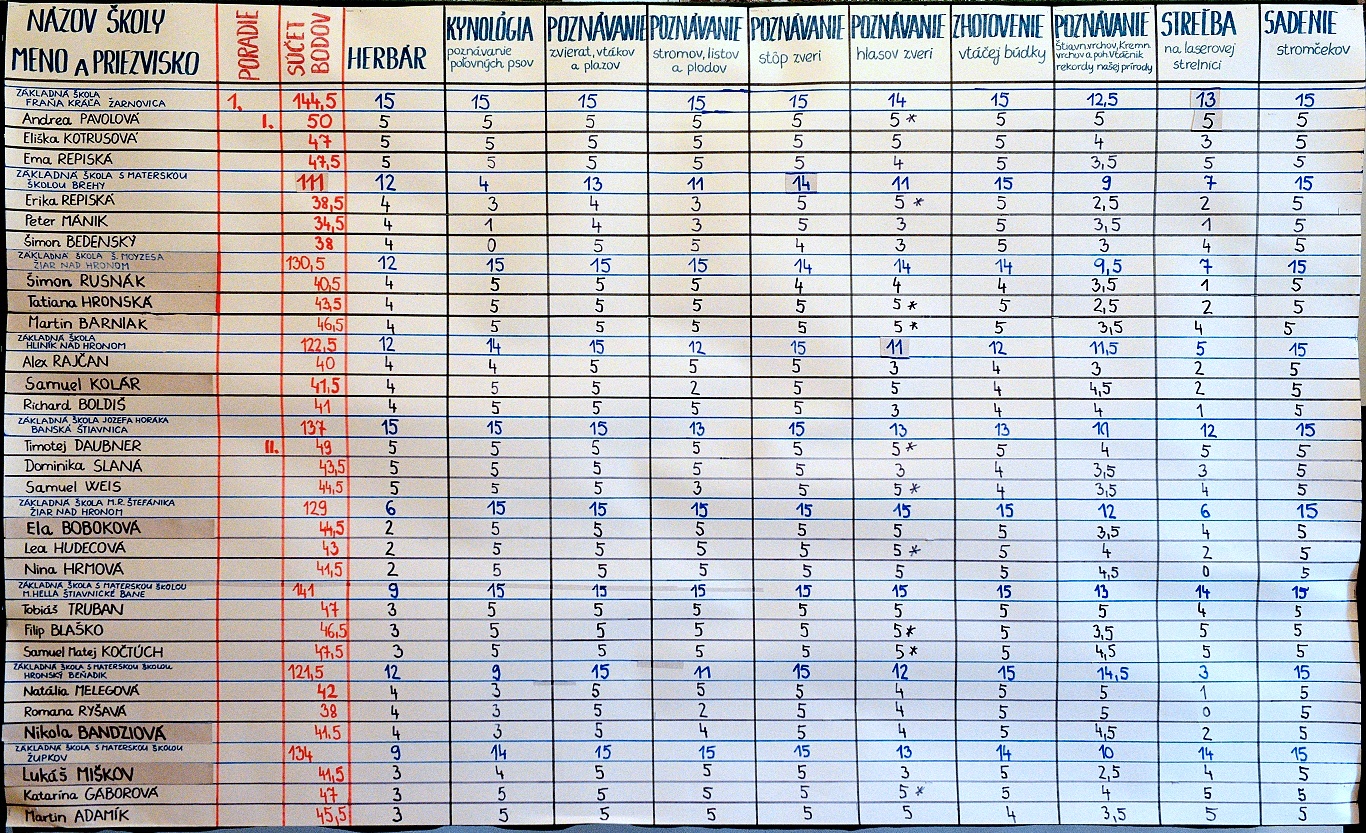 NÁZOV ŠKOLY
MENO A PRIEZVISKO
PORADIE
SÚČET BODOV
HERBÁR
KYNOLÓGIA
poznávanie
poľovných psov
POZNÁVANIE
zvierat, vtákov
a plazov
POZNÁVANIE
stromov, listov
a plodov
POZNÁVANIE
stôp zveri
POZNÁVANIE
hlasov zveri
ZHOTOVENIE
vtáčej búdky
POZNÁVANIE
Štiavn.vrchov, Kremn.
vrchov a poh.Vtáčnik
rekordy našej prírody
STREĽBA
na laserovej
strelnici
SADENIE
stromčekov
ZÁKLADNÁ ŠKOLA
FRAŇA KRÁĽA ŽARNOVICA 1. 144,5 15 15 15 15 15 14 15 12,5 13 15
Andrea PAVOLOVÁ I. 50 5 5 5 5 5 5* 5 5 5 5
Eliška KOTRUSOVÁ 47 5 5 5 5 5 5 5 4 3 5
Ema REPISKÁ 47,5 5 5 5 5 5 4 5 3,5 5 5
ZÁKLADNÁ ŠKOLA S MATERSKOU
ŠKOLOU BREHY 111 12 4 13 11 14 11 15 9 7 15
Erika REPISKÁ 38,5 4 3 4 3 5 5* 5 2,5 2 5
Peter MÁNIK 34,5 4 1 4 3 5 3 5 3,5 1 5
Šimon BEDENSKÝ 38 4 0 5 5 4 3 5 3 4 5
ZÁKLADNÁ ŠKOLA Š. MOYZESA
ŽIAR NAD HRONOM 130,5 12 15 15 15 14 14 14 9,5 7 15
Šimon RUSNÁK 40,5 4 5 5 5 4 4 4 3,5 1 5
Tatiana HRONSKÁ 43,5 4 5 5 5 5 5* 5 2,5 2 5
Martin BARNIAK 46,5 4 5 5 5 5 5* 5 3,5 4 5
ZÁKLADNÁ ŠKOLA
HLINÍK NAD HRONOM 122,5 12 14 15 12 15 11 12 11,5 5 15
Alex RAJČAN 40 4 4 5 5 5 3 4 3 2 5
Samuel KOLÁR 41,5 4 5 5 2 5 5 4 4,5 2 5
Richard BOLDIŠ 41 4 5 5 5 5 3 4 4 1 5
ZÁKLADNÁ ŠKOLA JOZEFA HORÁKA
BANSKÁ ŠTIAVNICA 137 15 15 15 13 15 13 13 11 12 15
Timotej DAUBNER II. 49 5 5 5 5 5 5* 5 4 5 5
Dominika SLANÁ 43,5 5 5 5 5 5 3 4 3,5 3 5
Samuel WEIS 44,5 5 5 5 3 5 5* 4 3,5 4 5
ZÁKLADNÁ ŠKOLA M.R. ŠTEFÁNIKA
ŽIAR NAD HRONOM 129 6 15 15 15 15 15 15 12 6 15
Ela BOBOKOVÁ 44,5 2 5 5 5 5 5 5 3,5 4 5
Lea HUDECOVÁ 43 2 5 5 5 5 5* 5 4 2 5
Nina HRMOVÁ 41,5 2 5 5 5 5 5 5 4,5 0 5
ZÁKLADNÁ ŠKOLA S MATERSKOU ŠKOLOU
M.HELLA ŠTIAVNICKÉ BANE 141 9 15 15 15 15 15 15 13 14 15
Tobiáš TRUBAN 47 3 5 5 5 5 5 5 5 4 5
Filip BLAŠKO 46,5 3 5 5 5 5 5* 5 3,5 5 5
Samuel Matej KOČTÚCH 47,5 3 5 5 5 5 5* 5 4,5 5 5
ZÁKLADNÁ ŠKOLA S MATERSKOU ŠKOLOU
HRONSKÝ BEŇADIK 121,5 12 9 15 11 15 12 15 14,5 3 15
Natália MELEGOVÁ 42 4 3 5 5 5 4 5 5 1 5
Romana RYŠAVÁ 38 4 3 5 2 5 4 5 5 0 5
Nikola BANDZIOVÁ 41,5 4 3 5 4 5 4 5 4,5 2 5
ZÁKLADNÁ ŠKOLA S MATERSKOU ŠKOLOU
ŽUPKOV 134 9 14 15 15 15 13 14 10 14 15
Lukáš MIŠKOV 41,5 3 4 5 5 5 3 5 2,5 4 5
Katarína GÁBOROVÁ 47 3 5 5 5 5 5* 5 4 5 5
Martin ADAMÍK 45,5 3 5 5 5 5 5 4 3,5 5 5